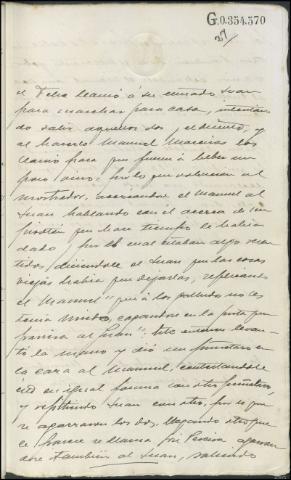 G.0.354,570
27
el Felix llamó a su cuñado Juan
para marchar para casa, intentan
do salir aquellos dos, el dicente, y
al hacerlo Manuel Maceiras los
llamó para que fueran á beber un
poco vino: por lo que volvieron al
mostrador, acercandose el Manuel al
Juan hablando con él acerca de un
que hace tiempo le habia
dado, por lo cual estaban algo
tidos, diciendole el Juan que las cosas
viejas habia que dejarlas, replicando
el Manuel "que á los no les
tenia miedo,
al Juan". Este entonces levan-
tó la mano y dió un puñetazo en
la cara al Manuel, contestandole
en igual forma con otro puñetazo,
y repitiendo Juan con otro, por lo que
se agarraron los dos, llegando otro que
le llama José Pereira agarran
dose tambien al Juan, saliendo